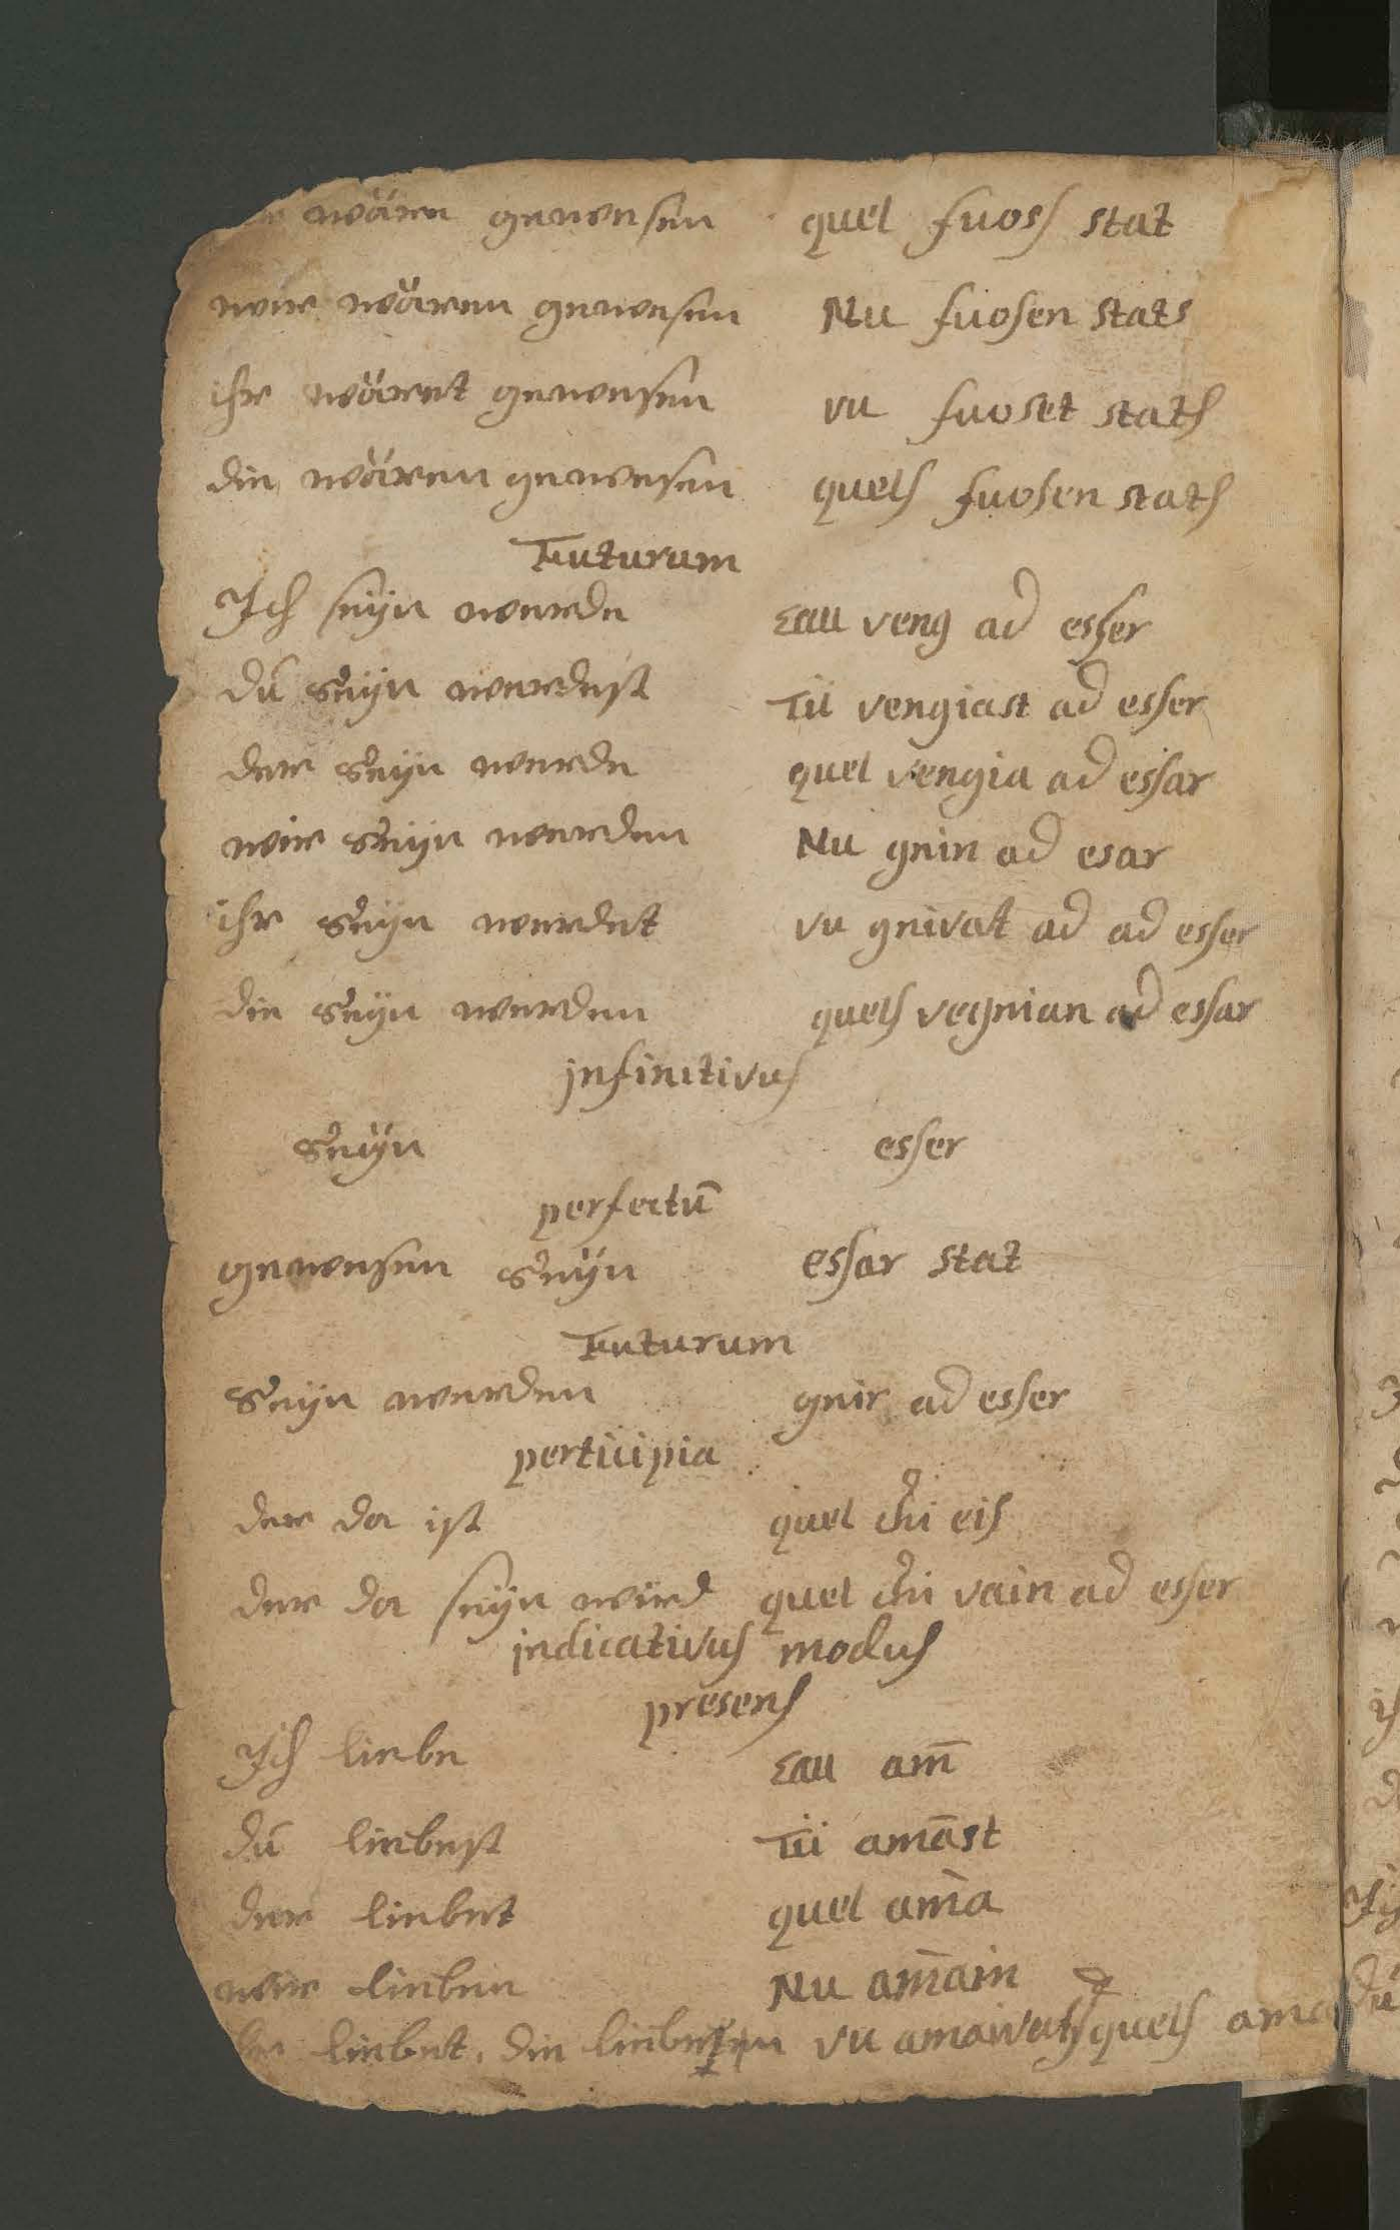 wären gewessen quel fuoss stat
wir wärenn gewessen Nu fuosen stats
ihr wärent gewessen vu fuoset stats
die wärenn gewessen quels fuosen stats
Futurum
Ich seÿn werde Eau veng ad esser
dū seÿn werdest Tü vengiast ad esser
der seÿn werde quel vengia ad essar
wir seÿn werden Nu gnin ad esar
ihr seÿn werdet vu gnivat ad ad esser
die seÿn werden quels vegnian ad essar
jnfinitivus
seÿn esser
perfectū
gewessen seÿn essar stat
Futurum
seÿn werden gnir ad esser
perticipia
der da ist quel chi eis
der da seÿn würd quel chi vain ad esser
jndicativus modus
presens
Ich liebe Eau am̄
dū liebest Tü amāst
der liebet quel am̄a
wir lieben Nu am̄ain
liebet. die vu amaivats quels